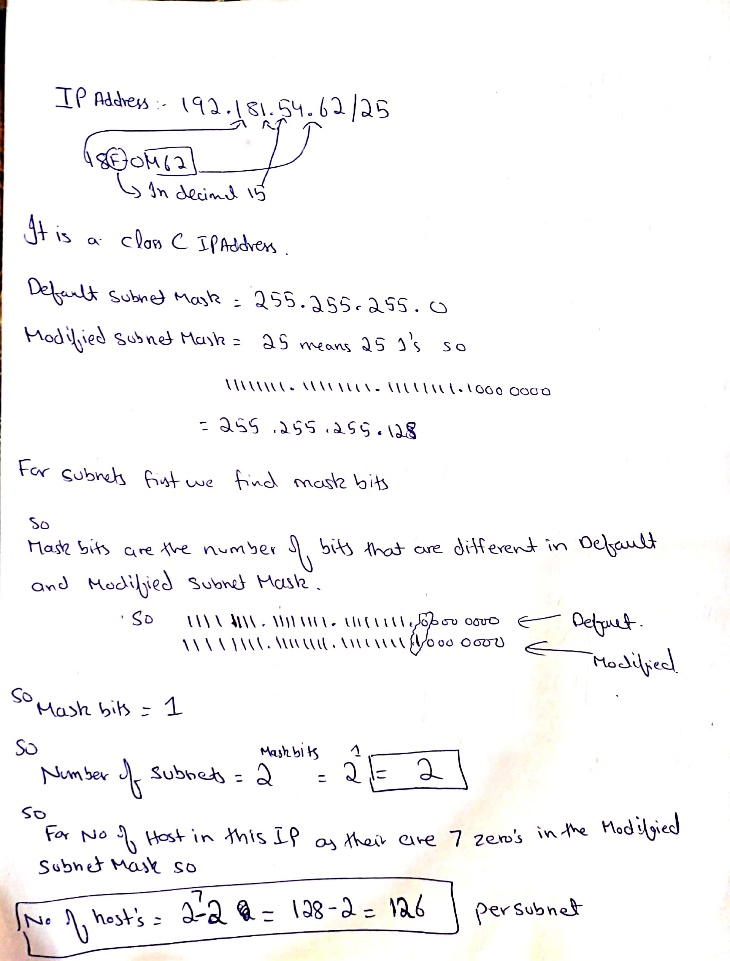 IP Address :- 192.181.54.62/25
18F-0M62
↳ In decimal 15
It is a class C IPAddress.
Default Subnet Mask = 255.255.255.0
Modified Subnet Mask = 25 means 25 1's so
11111111.11111111.11111111.1000 0000
= 255.255.255.128
For subnets first we find mask bits
So
Mask bits are the number of bits that are different in Default
and Modified Subnet Mask.
So 11111111.11111111.11111111.0000 0000 ← Default.
11111111.11111111.11111111.1000 0000 ← Modified.
So Mask bits = 1
So
Number of subnets = 2^Mashbits = 2^1 = 2
So
For No of Host in this IP as their are 7 zero's in the Modifgied
Subnet Mask so
No of host's = 2^7-2 = 128-2 = 126 per subnet